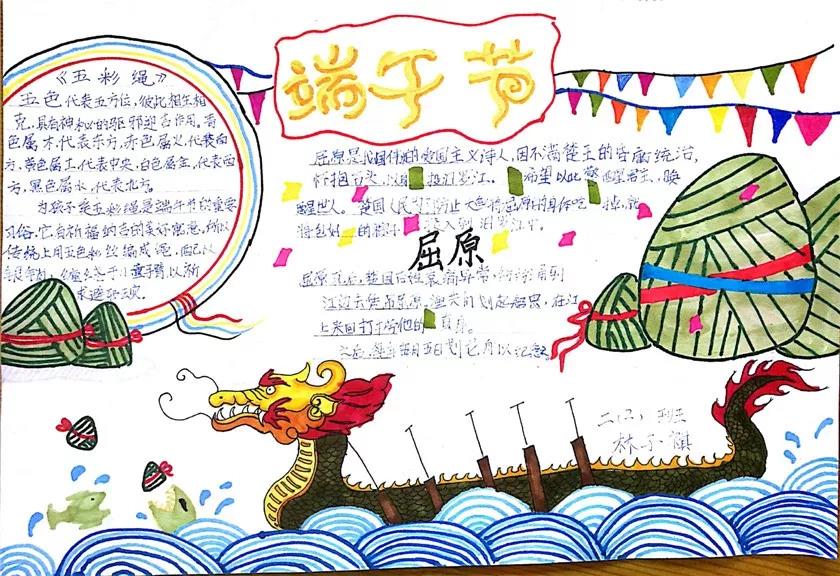 端午节
《五彩绳》
五色代表五方位，彼此相生相
克，具有神秘的驱邪迎吉作用。青
色属木，代表东方，赤色属火，代表南
方，黄色属土，代表中央，白色属金，代表西
方，黑色属水，代表北方。
为孩子系五彩绳是端午节的重要
习俗，它有祈福纳吉的美好寓意，所以
传统上用五色粉丝编成绳
缠系于小孩手臂，以祈
求避邪去灾。
屈原是我国伟大的爱国主义诗人，因不满楚王的昏庸统治，
怀抱石头，投汨罗江。希望以此醒君王，唤
醒世人。楚国人民
到汨罗江中。
屈原
屈原死后，楚国百姓哀痛异常，纷纷涌到
江边去凭吊屈原，渔夫们划起船只，在江
上来回打捞他的真身。
之后，每年五月五日划龙舟以纪念
二(2)班
林子